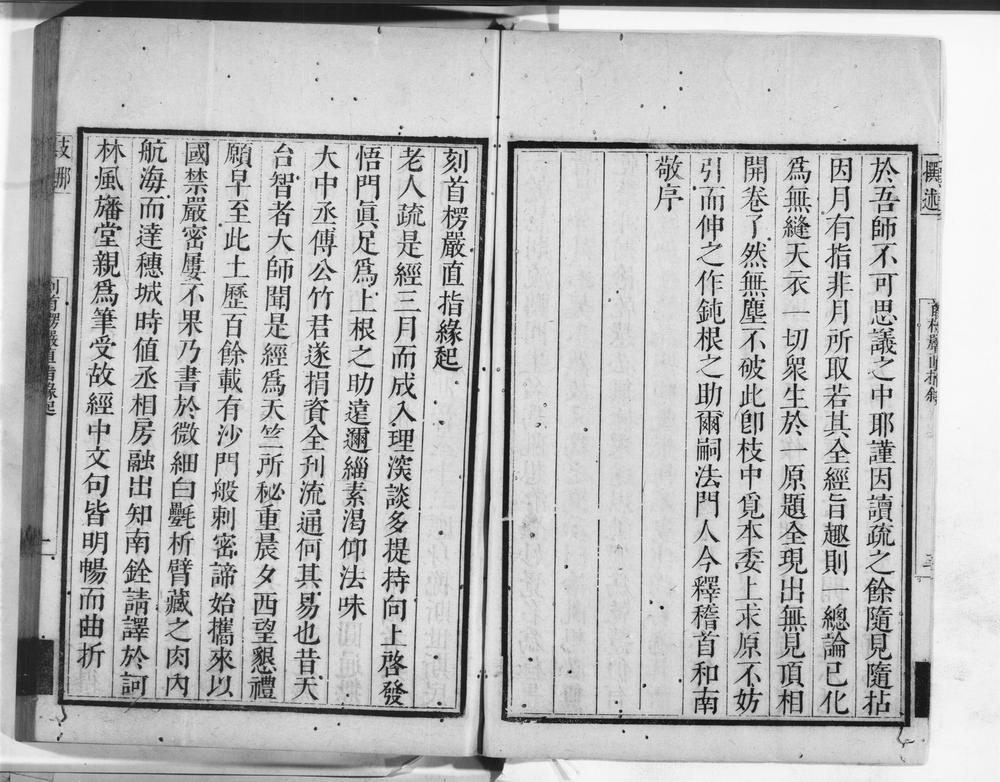 於吾師不可思議之中耶謹因讀疏之餘隨見隨拈
因月有指非月所取若其全經旨趣則一總論已化
爲無縫天衣一切衆生於一原題全現出無見頂相
開卷了然無塵不破此卽枝中覓本委上求原不妨
引而伸之作鈍根之助爾嗣法門人今釋稽首和南
敬序
刻首楞嚴直指緣起
老人疏是經三月而成入理深談多提持向上啓發
悟門眞足爲上根之助遠邇緇素渴仰法味
大中丞傅公竹君遂捐資全刋流通何其易也昔天
台智者大師聞是經爲天竺所秘重晨夕西望懇禮
願早至此土歷百餘載有沙門般刺密諦始攜來以
國禁嚴密屢不果乃書於微細白㲲析臂藏之肉內
航海而達穗城時值丞相房融出知南銓請譯於訶
林風旛堂親爲筆受故經中文句皆明暢而曲折
刻首楞嚴直指緣起